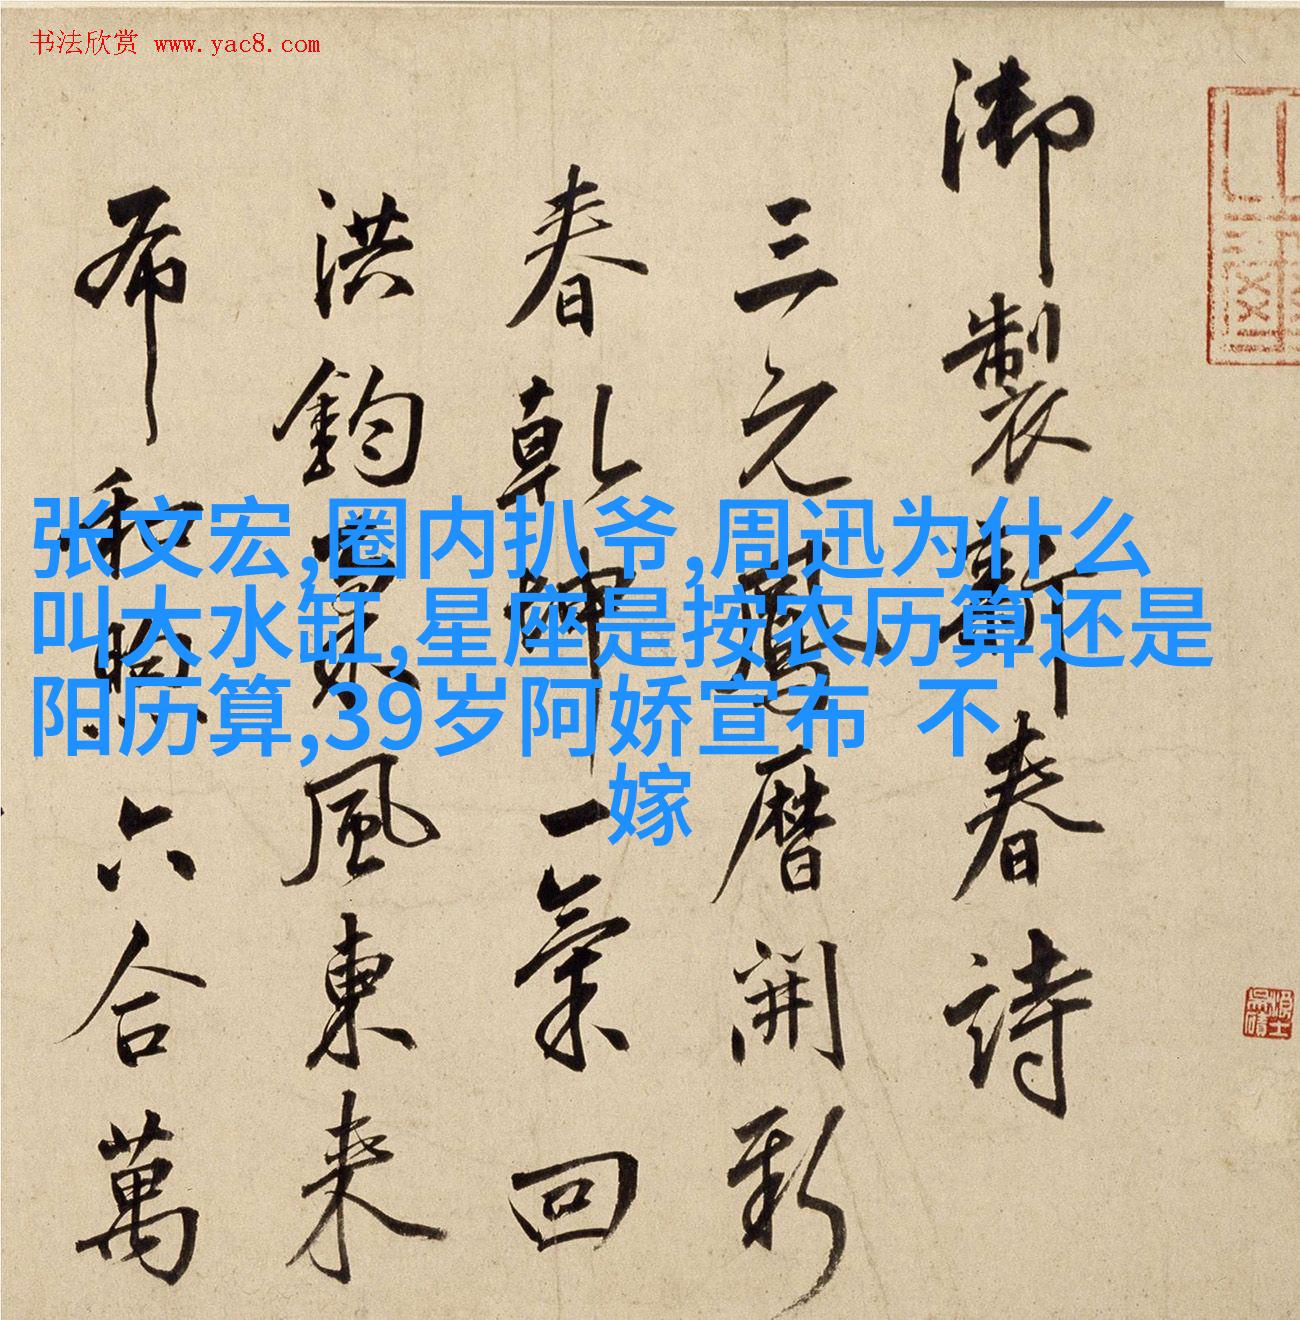 书法欣赏 www.yac8.com
御製新春詩
三元鳳曆開新
春乾坤一氣回
洪鈞風東来
布和煦六合萬
张文宏,圈内扒爷,周迅为什么
叫大水缸,星座是按农历算还是
阳历算,39岁阿娇宣布 不
嫁